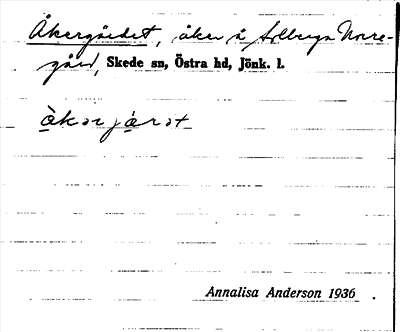 Åkergärdet, åker å Solberga Norre-
gård, Skede sn, Östra hd, Jönk. l.
Annalisa Anderson 1936